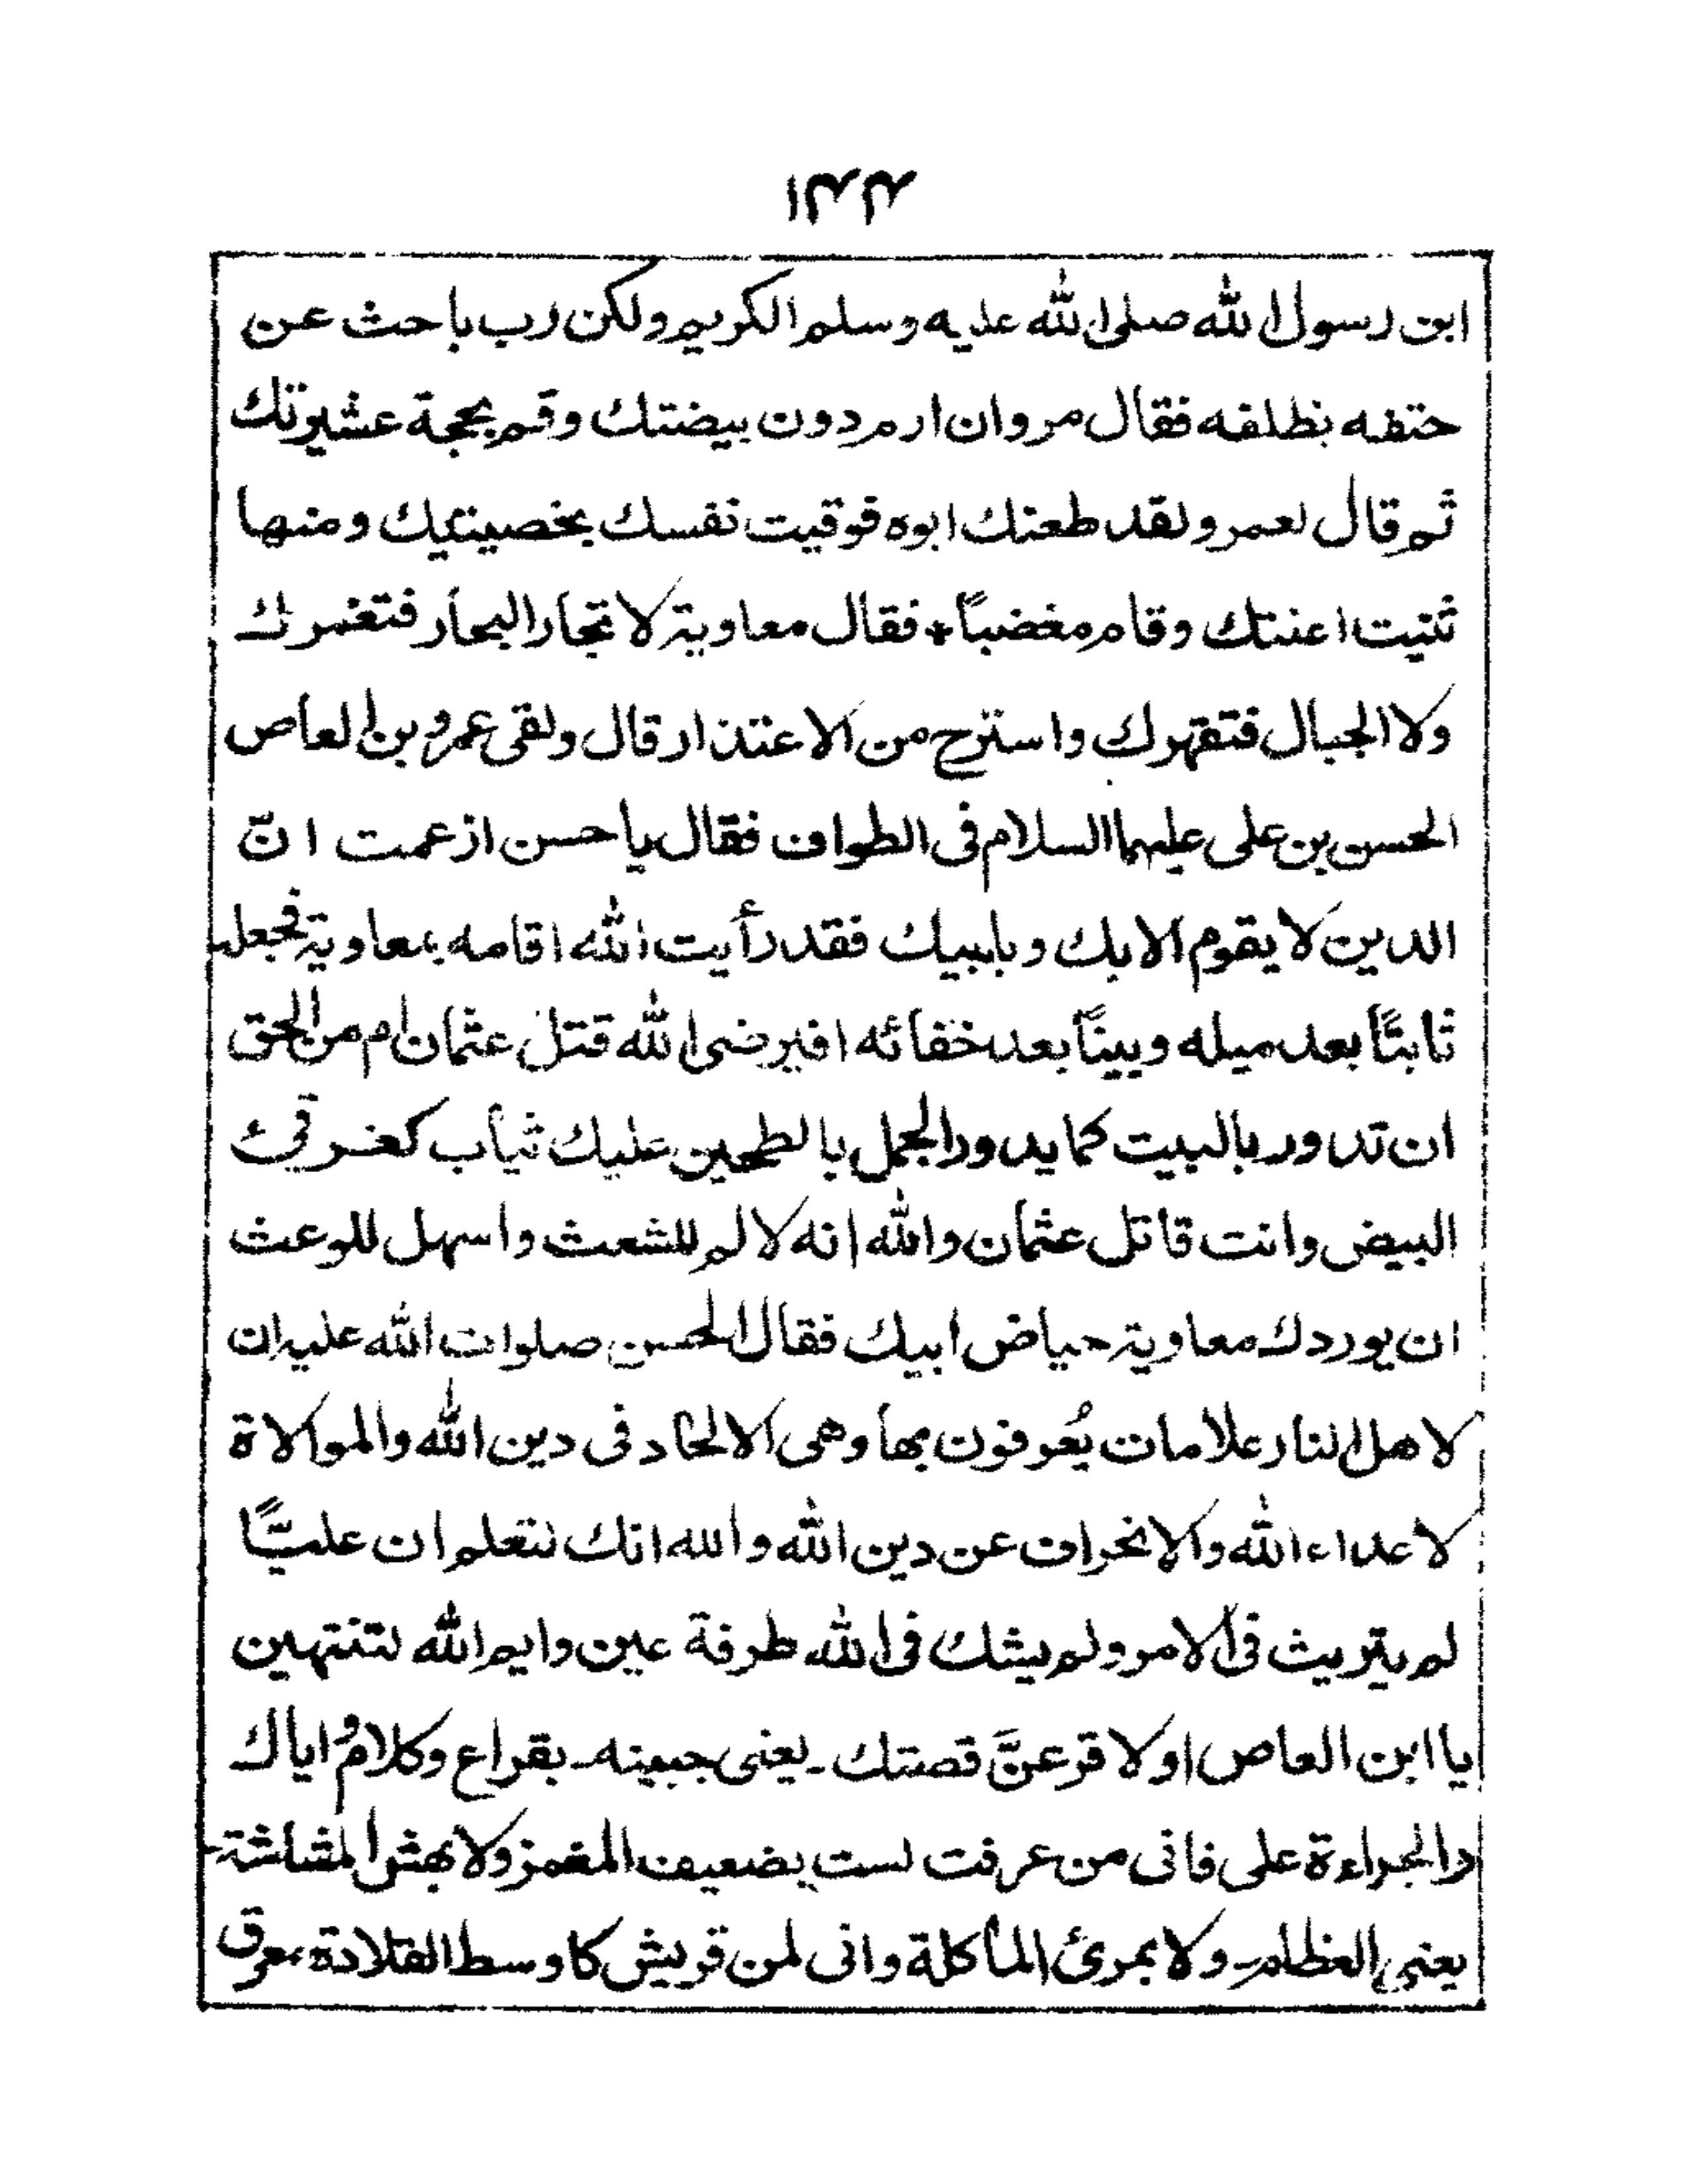 ابن رسول الله صلى الله عليه وسلم الكريم ولكن رب باحث عن
حتفه بظلفه فقال مروان ارم دون بيضتك وقم بحجة عشيرتك
ثم قال لعمرو لقد طعنك ابوه فوقيت نفسك بخصيتيك ومنها
ثنيت اعنتك وقام مغضباً * فقال معاوية لا تجار البحار فتغمرك
ولا الجبال فتقهرك واسترح من الاعتذار قال ولقى عمرو بن العاص
الحسن بن على عليهما السلام فى الطواف فقال يا حسن ازعمت انّ
الدين لا يقوم الا بك وبابيك فقد رأيت الله اقامه بمعاوية فجعله
ثابتًا بعد ميله وبينًا بعد خفائه افيرضى الله قتل عثمان ام من الحق
ان تدور بالبيت كما يدور الجمل بالطحين عليك ثياب كغرقئ
البيض وانت قاتل عثمان والله انه لالم للشعث واسهل للوعث
ان يوردك معاوية حياض ابيك فقال الحسن صلوات الله عليه ان
لاهل النار علامات يُعرفون بها وهى الالحاد فى دين الله والموالاة
لاعداء الله والانحراف عن دين الله والله انك لتعلم ان عليًّا
لم يتريث فى الامر ولم يشك فى الله طرفة عين وايم الله لتنتهين
يا ابن العاص او لاقرعنَّ قصتك ـ يعنى جبينه ـ بقراع وكلام واياك
والجراءة على فانى من عرفت لست بضعيف المغمز ولا بهش المشاشة ـ
يعنى العظام ـ ولا بمرئ المأكلة وانى لمن قريش كاوسط القلادة معرق